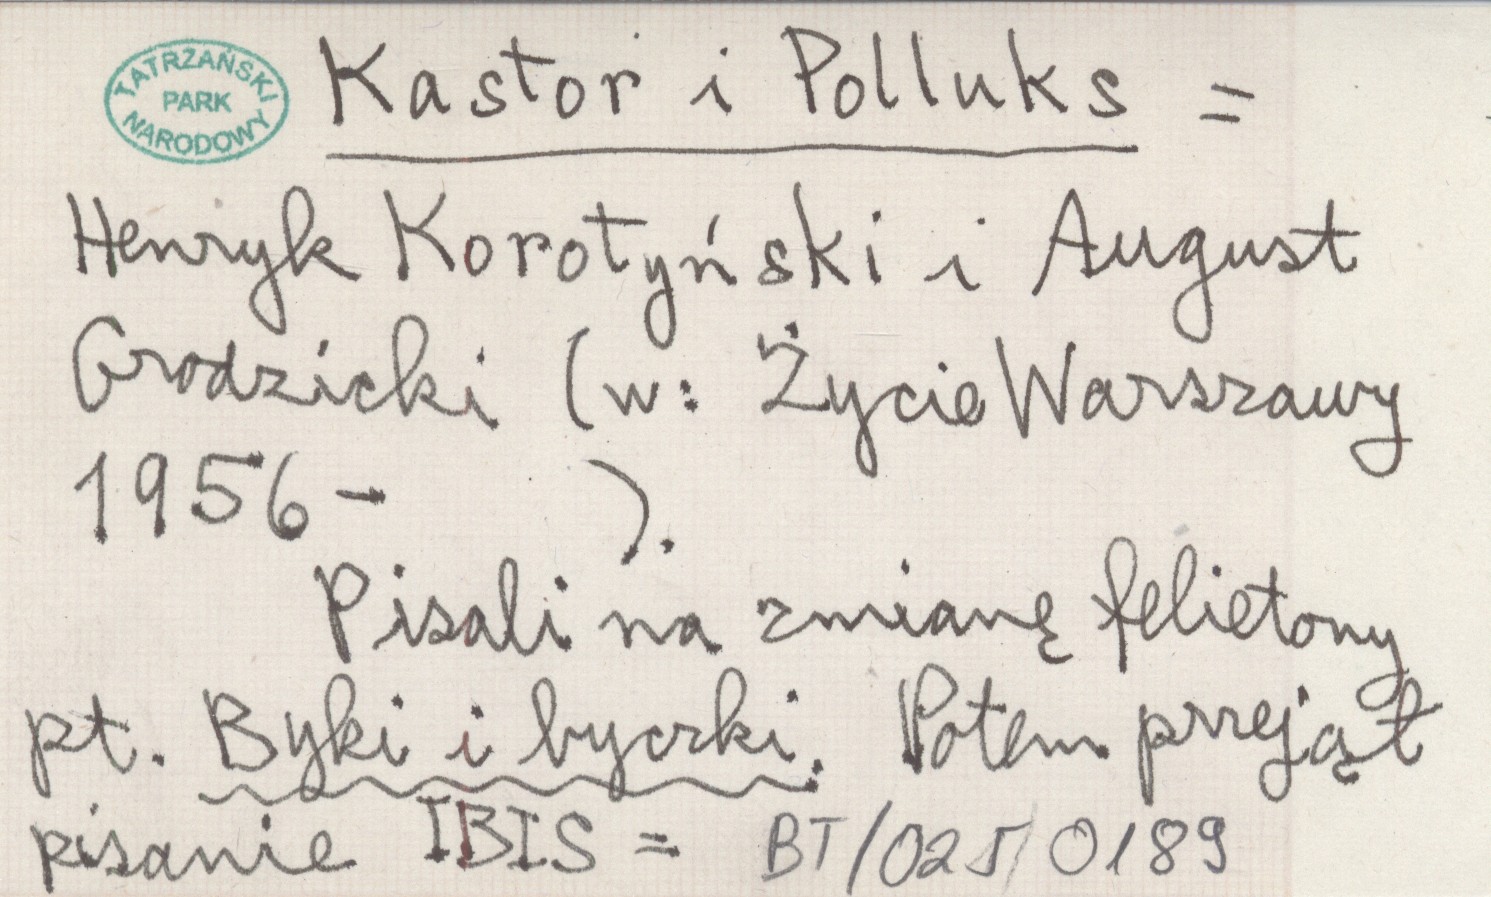 TATRZAŃSKI
PARK
NARODOWY
Kastor i Polluks =
Henryk Korotyński i August
Grodzicki (w: Życie Warszawy
1956- ).
Pisali na zmianę felietony
pt. Byki i byczki. Potem przejął
pisanie IBIS = BT/025/0189